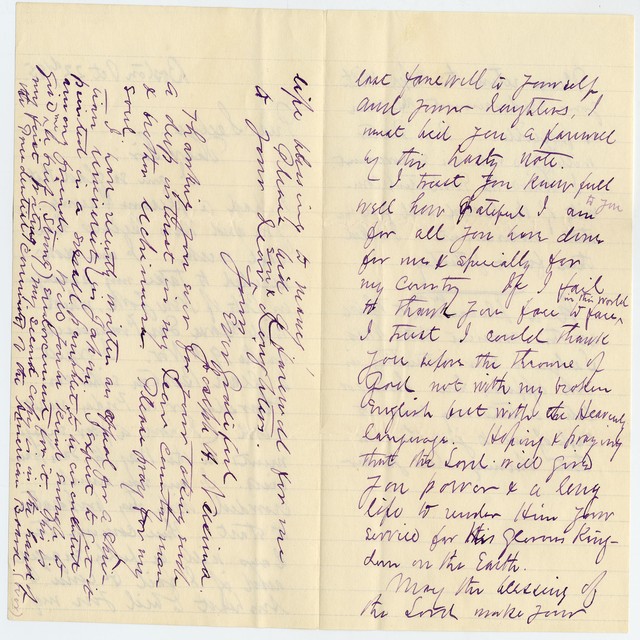 last farewell to yourself
and your daughters, I
must bid you a farewell
by this hasty note.
I trust you know full
well how grateful I am to you
for all you have done
for me & specially for
my country If I fail
to thank you face to face in this world
I trust I could thank
you before the throne of
God not with my broken
English but with the Heavenly
language. Hoping & praying
that the Lord will give
you power & a long
life to render Him your
service for His glorious King-
dom on the Earth.
May the blessing of
the Lord make your
life blessing to many!
Please bid a farewell for me
to your son & daughters.
Your Ever Grateful
Joseph H Neesima.
Thanking you ever for your taking such
a deep interest in my dear country man
& brother Uchimura. Please pray for my
soul.
I have recently written an appeal for a Chris-
tian university in Japan. I expect to get it
printed in a small pamphlet to circulate it
among friends. Will you be kind enough to
give me brief (strong) endorsement for it. This is
my first writing my second copy is in the hand of
the Prudential Committee of the American Board